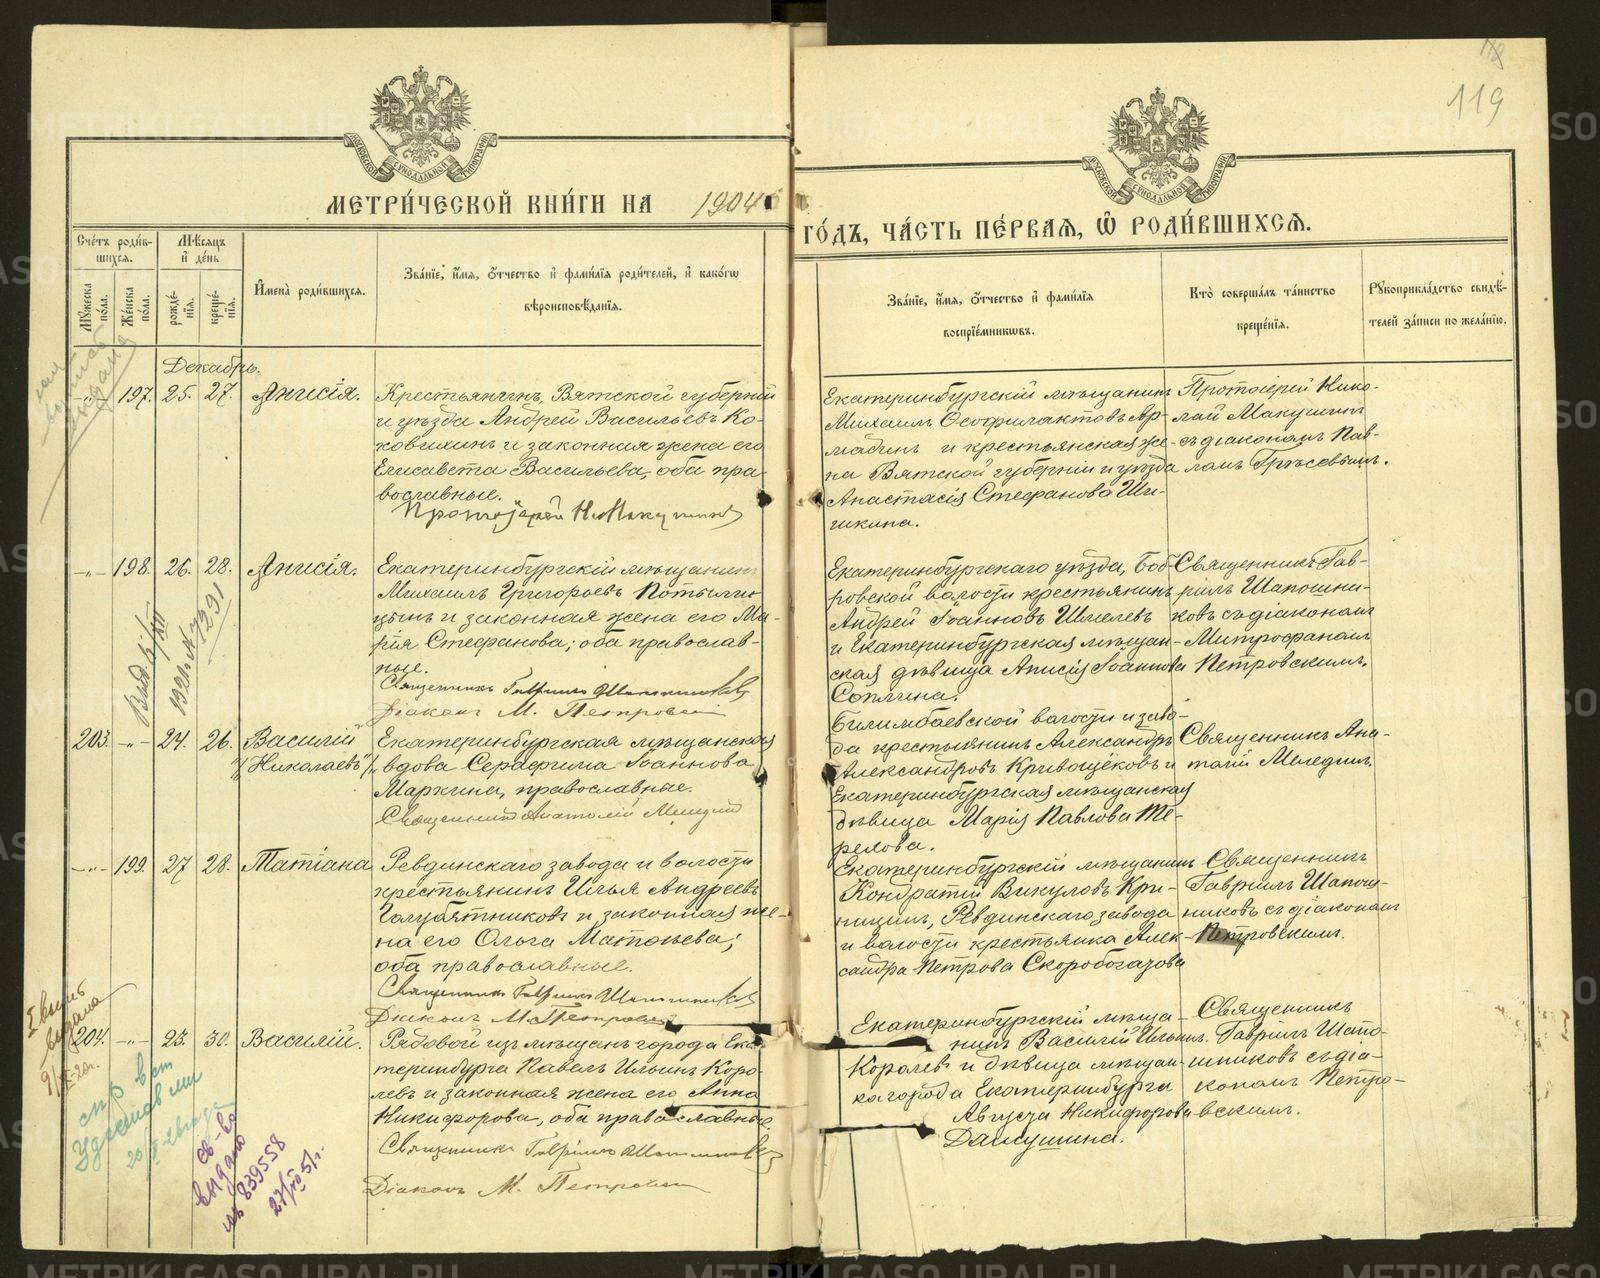 119
МЕТРИ́ЧЕСКОЙ КНИ́ГИ НА 1904
ГО́ДЪ, ЧА́СТЬ ПЕ́РВАЯ, Ѡ҆ РОДИ́ВШИХСЯ.
Сче́тъ роди́в-
шихся.
Мѣ́сяцъ
и҆ де́нь
Мꙋ́жеска
по́ла.
Же́нска
по́ла.
рожде́-
нїя.
креще́-
нїя.
И҆мена̀ роди́вшихся.
Зва́нїе, и҆́мя, ѻ҆́тчество и҆ фами́лїя роди́телей, и҆ како́гѡ
вѣроисповѣ́данїя.
Зва́нїе, и҆́мя, ѻ҆́тчество и҆ фами́лїя
воспрїе́мникѡвъ.
Кто̀ соверша́лъ та́инство
креще́нїя.
Рꙋкоприкла́дство свидѣ́-
телей за́писи по жела́нїю.
Декабрь.
-"- 197. 25. 27. Анисія.
Крестьянинъ, Вятской губерніи
и уѣзда Андрей Васильевъ Ко-
ковихинъ и законная жена его
Елисавета Васильева, оба пра-
вославные.
Протоіерей Н. Макушинъ
Екатеринбургскій мѣщанинъ
Михаилъ Ѳеофилактовъ Ар-
мадинъ и крестьянская же-
на Вятской губерніи и уѣзда
Анастасія Стефанова Ши-
шкина.
Протоіерей Нико-
лай Макушинъ
съ діакономъ Пав-
ломъ Гръсевымъ.
-"- 198. 26. 28. Анисія.
Екатеринбургскій мѣщанинъ
Михаилъ Григорьевъ Потыли-
цынъ и законная жена его Ма-
рія Стефанова, оба православ-
ные.
Священникъ Гавріилъ Шапошниковъ
Діаконъ М. Петровскій
Екатеринбургскаго уѣзда, Боб-
ровской волости крестьянинъ
Андрей Іоанновъ Шмелевъ
и Екатеринбургская мѣщан-
ская дѣвица Анисія Іоаннова
Соплина.
Священникъ Гав-
ріилъ Шапошни-
ковъ съ діакономъ
Митрофаномъ
Петровскимъ.
Выд. 6/XII
1921 г. № 7291
203. -"- 24. 26. Василій
/"Николаевъ"/
Екатеринбургская мѣщанская
вдова Серафима Іоаннова
Маркина, православные.
Священникъ Анатолій Мелединъ
Билимбаевской волости и заво-
да крестьянинъ Александръ
Александровъ Кривощековъ и
Екатеринбургская мѣщанская
дѣвица Марія Павлова Те-
рехова.
Священникъ Ана-
толій Меледин.
-"- 199. 27 28. Татіана
Ревдинскаго завода и волости
крестьянинъ Илья Андреевъ
Голубятниковъ и законная же-
на его Ольга Матоѳева;
оба православные.
Священникъ Гавріилъ Шапошниковъ
Діаконъ М. Петровскій
Екатеринбургскій мѣщанинъ
Кондратій Викуловъ Кри-
ницинъ, Ревдинскаго завода
и волости крестьянка Алек-
сандра Петрова Скоробогатова
Священникъ
Гавріилъ Шапош-
никовъ съ діакономъ
Петровскимъ.
204. -"- 23. 30. Василій.
Рядовой изъ мѣщанъ города Ека-
теринбурга Павелъ Ильинъ Коро-
левъ и законная жена его Анна
Никифорова, оба православные.
Священникъ Гавріилъ Шапошниковъ
Діаконъ М. Петровскій
Екатеринбургскій мѣща-
нинъ Василій Ильинъ
Королевъ и дѣвица мѣщан-
ка города Екатеринбурга
Августа Никифорова
Данушина.
Священникъ
Гавріилъ Шапо-
шниковъ съ діа-
кономъ Петро-
вскимъ.
св-во
выдано
839558
27/XII-51 г.
METRIKI.GASO-URAL.RU